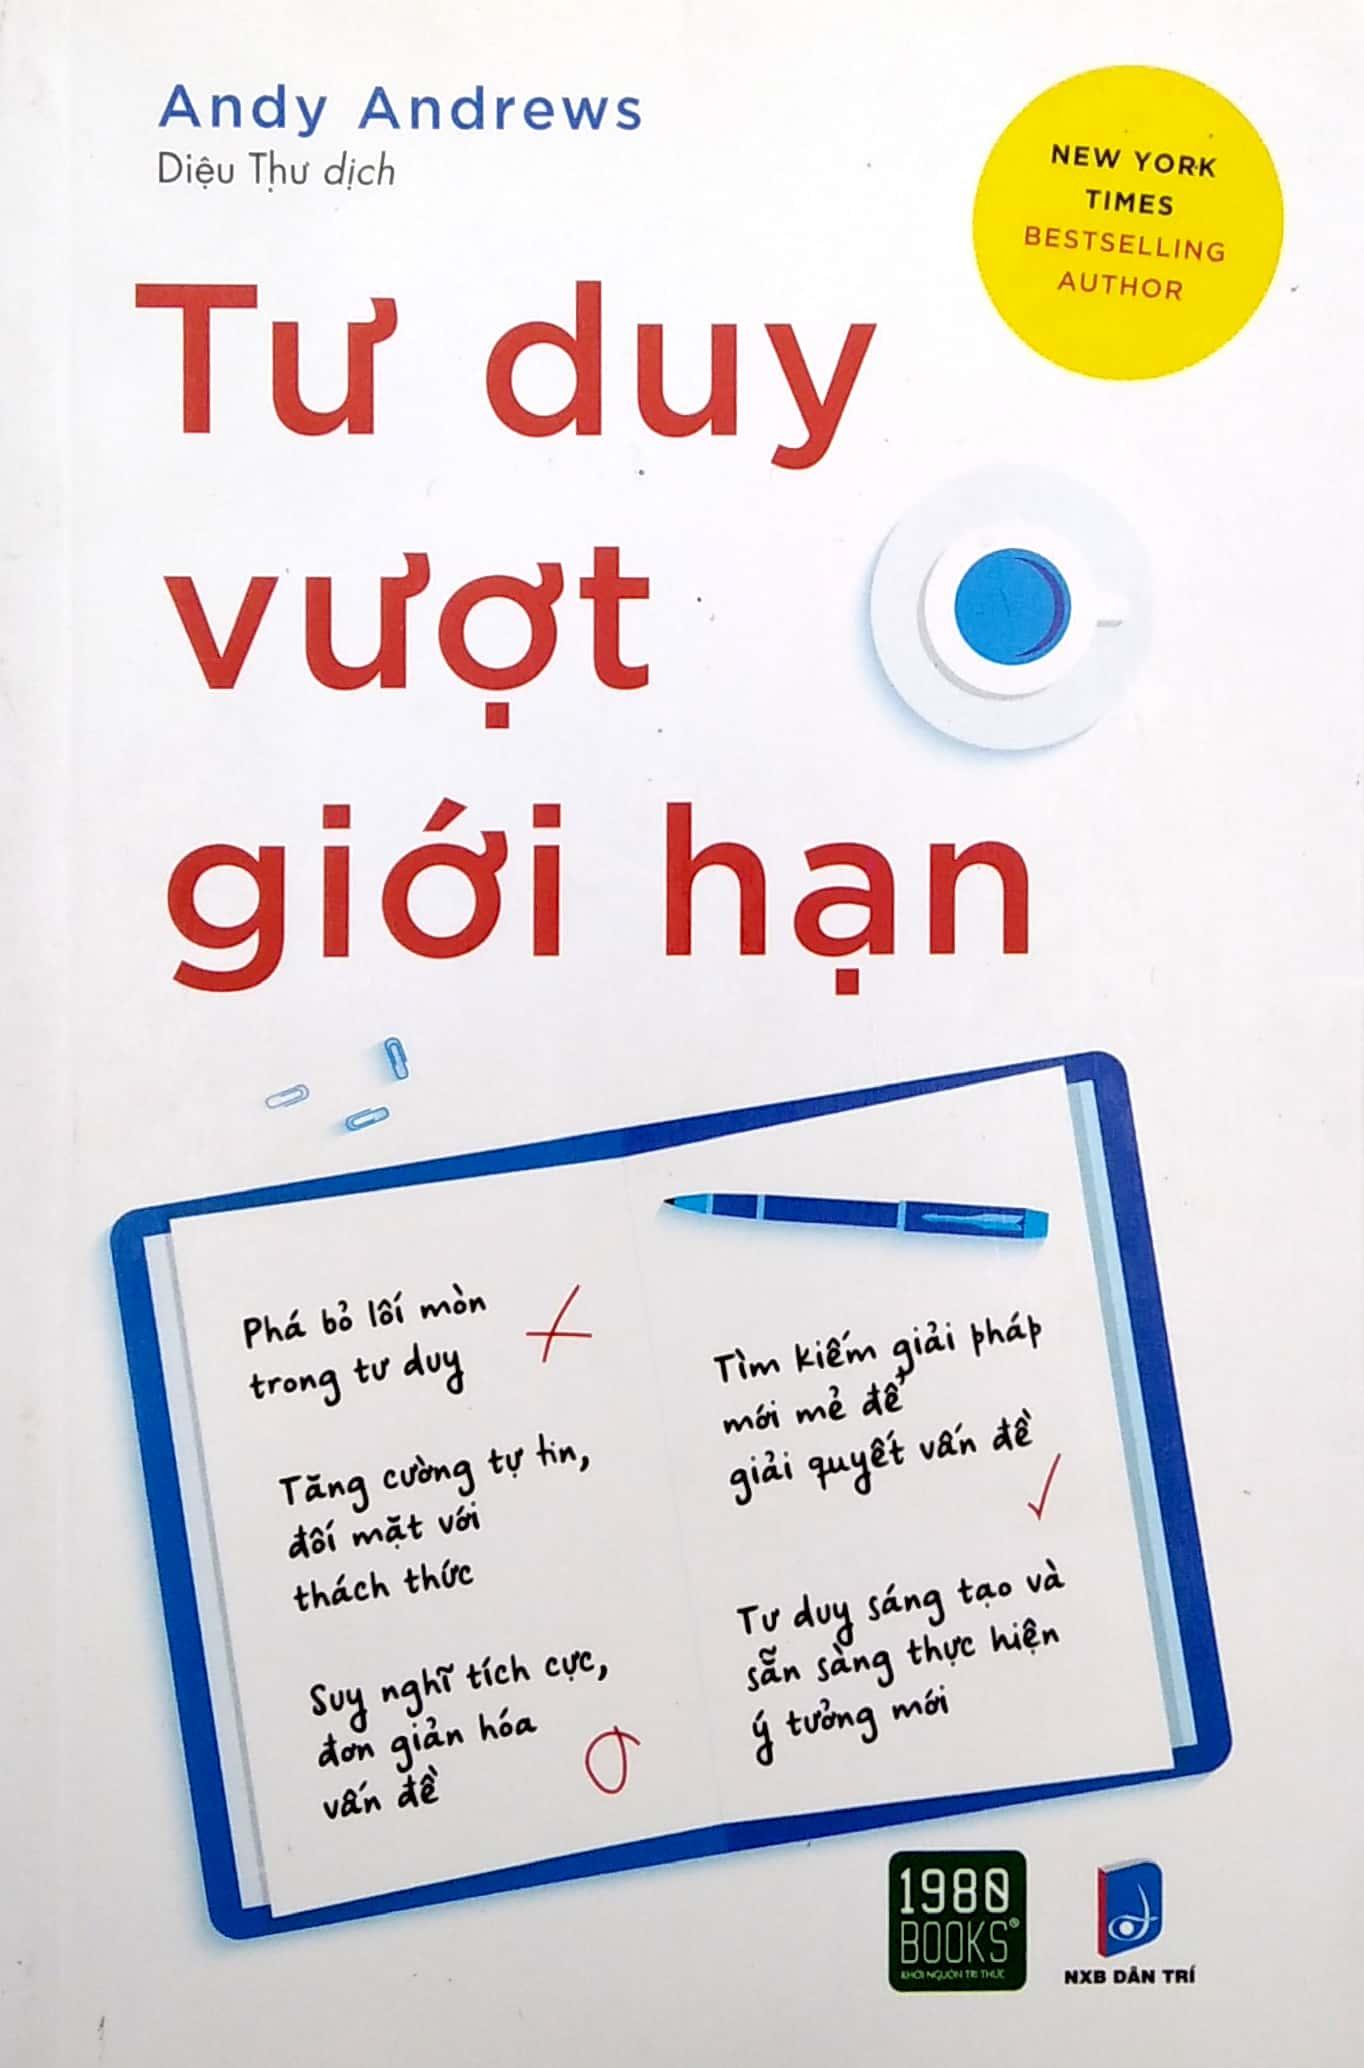 Andy Andrews
Diệu Thư dịch
NEW YORK
TIMES
BESTSELLING
AUTHOR
Tư duy
vượt
giới hạn
Phá bỏ lối mòn
trong tư duy
Tăng cường tự tin,
đối mặt với
thách thức
Suy nghĩ tích cực,
đơn giản hóa
vấn đề
Tìm kiếm giải pháp
mới mẻ để
giải quyết vấn đề
Tư duy sáng tạo và
sẵn sàng thực hiện
ý tưởng mới
1980
BOOKS®
KHƠI NGUỒN TRI THỨC
NXB DÂN TRÍ